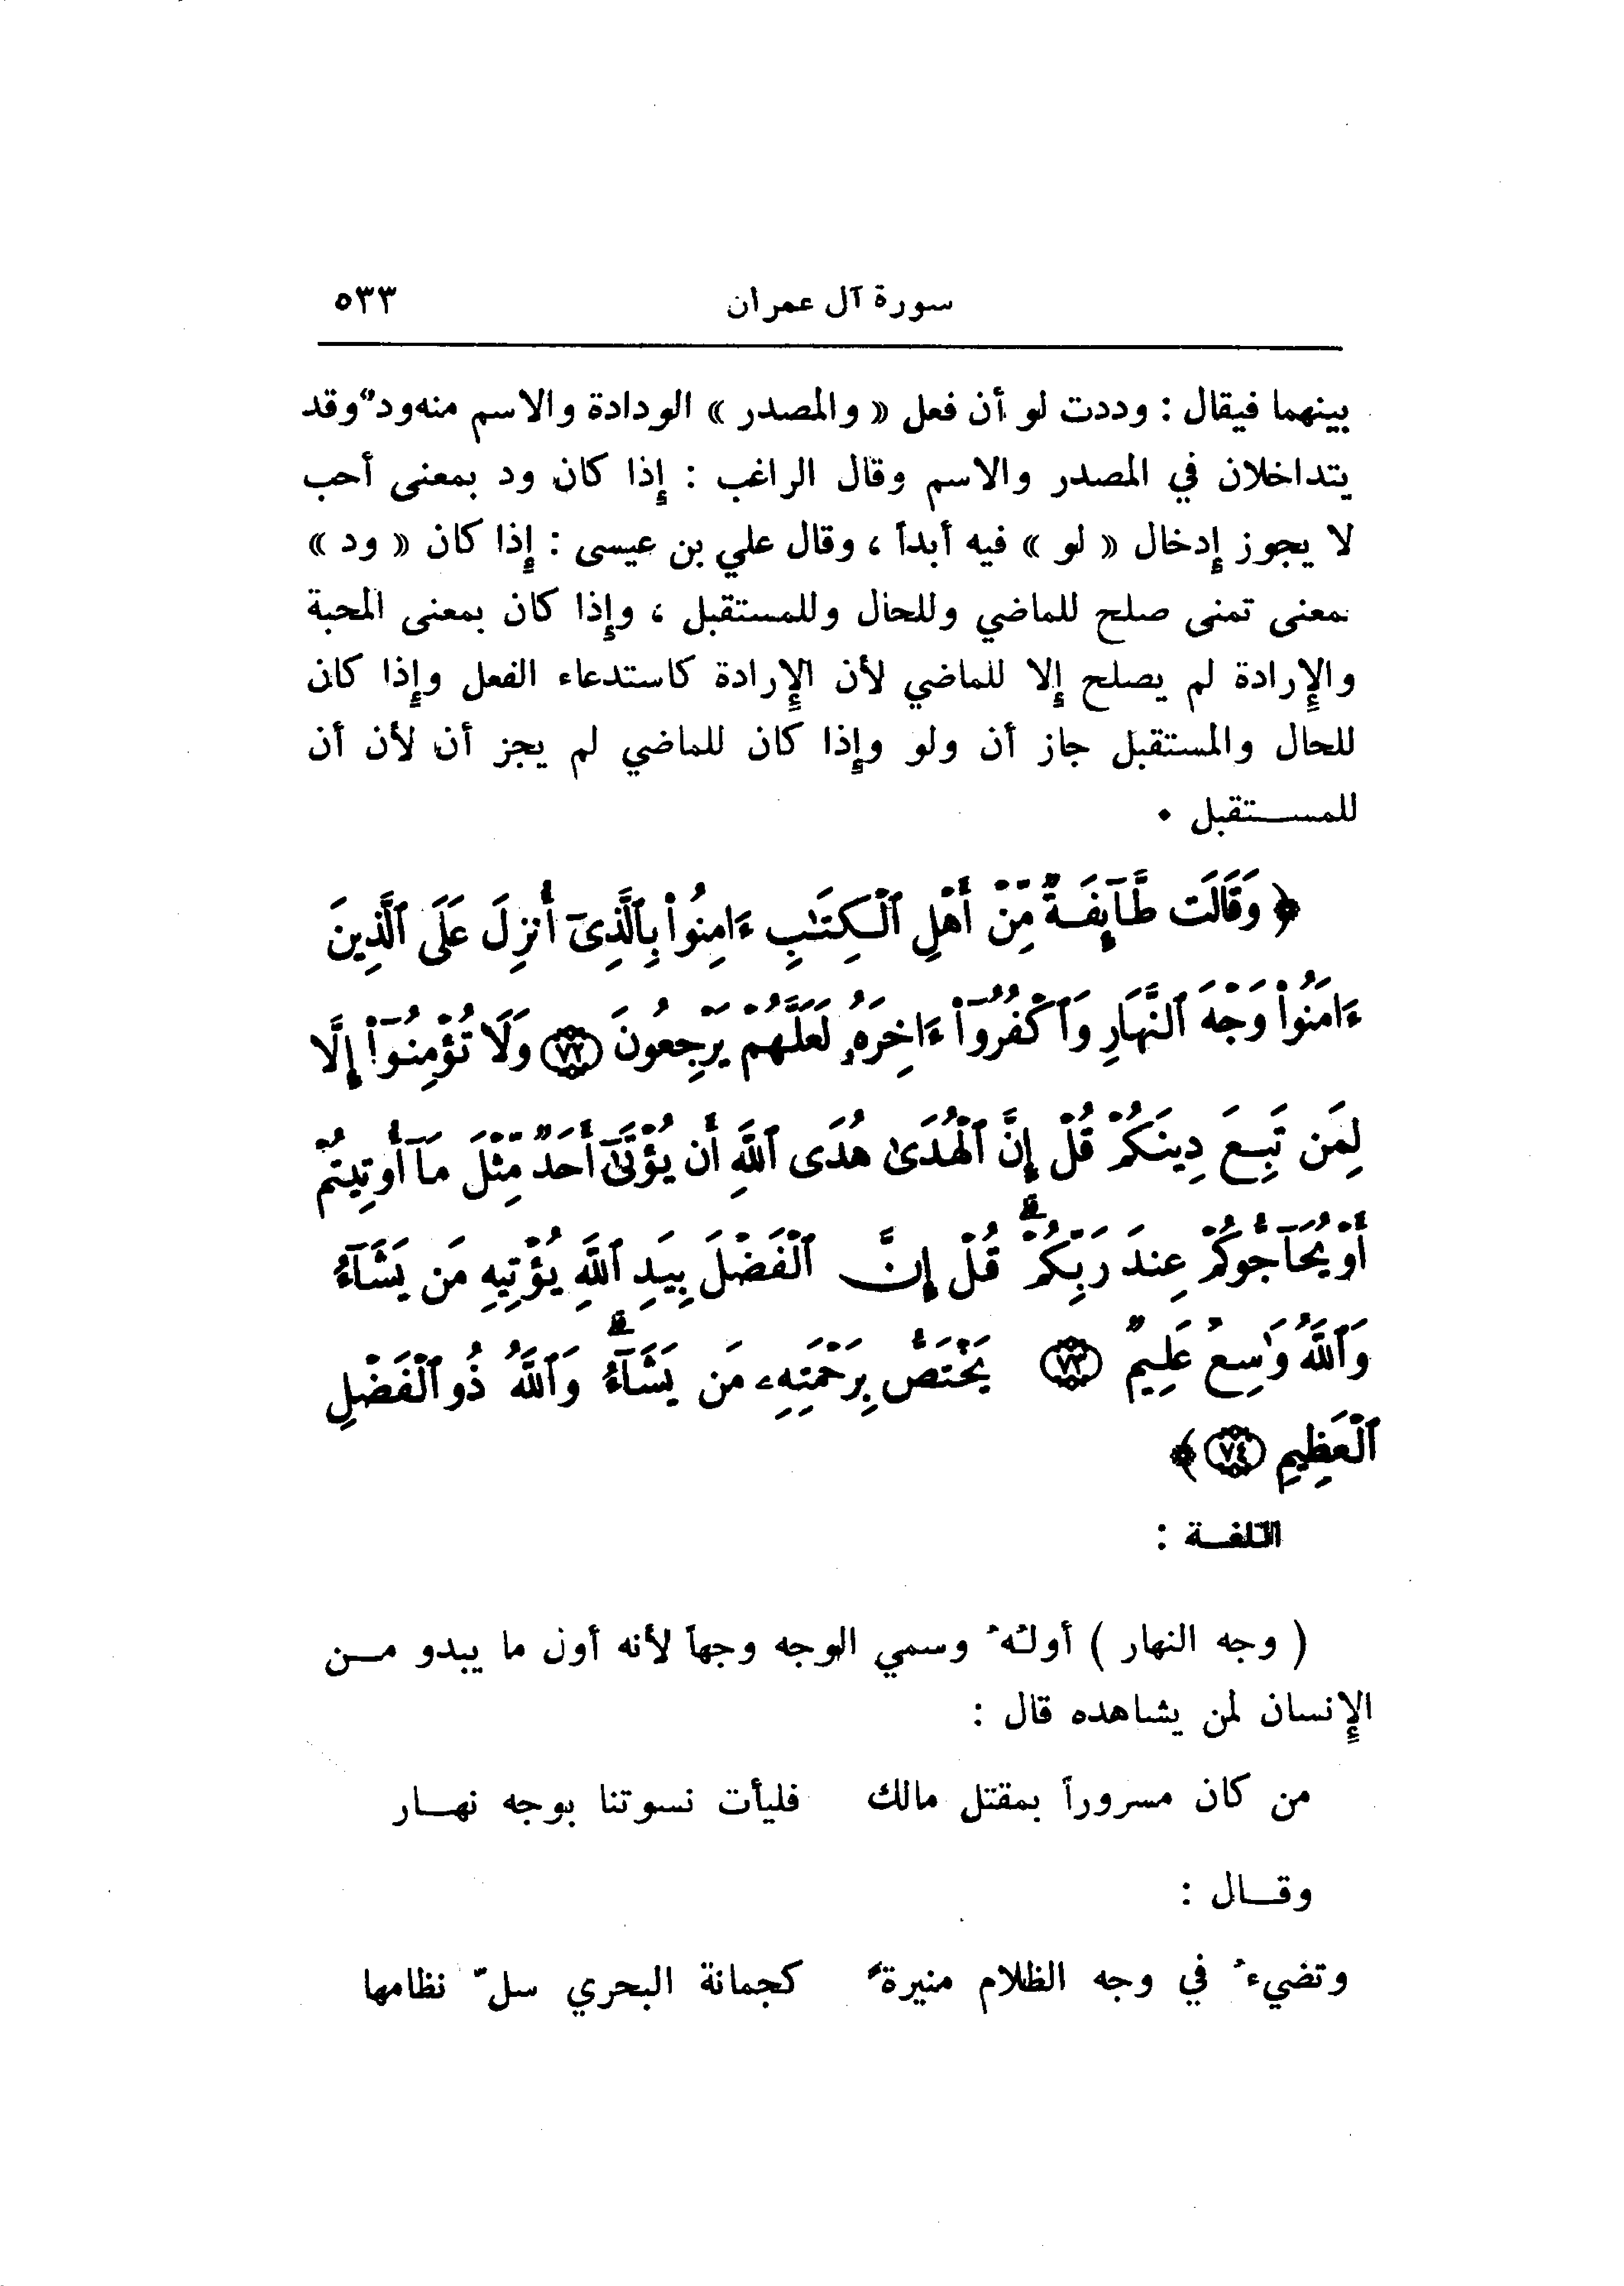 سورة آل عمران ٥٣٣
بينهما فيقال : وددت لو أن فعل « والمصدر » الودادة والاسم منه ودّ وقد
يتداخلان في المصدر والاسم وقال الراغب : إذا كان ود بمعنى أحب
لا يجوز إدخال « لو » فيه أبداً ، وقال علي بن عيسى : إذا كان « ود »
بمعنى تمنى صلح للماضي وللحال وللمستقبل ، وإذا كان بمعنى المحبة
والإرادة لم يصلح إلا للماضي لأن الإرادة كاستدعاء الفعل وإذا كان
للحال والمستقبل جاز أن ولو وإذا كان للماضي لم يجز أن لأن أن
للمستقبل .
﴿ وَقَالَت طَّآئِفَةٌ مِّنْ أَهْلِ ٱلْكِتَٰبِ ءَامِنُوا۟ بِٱلَّذِىٓ أُنزِلَ عَلَى ٱلَّذِينَ
ءَامَنُوا۟ وَجْهَ ٱلنَّهَارِ وَٱكْفُرُوٓا۟ ءَاخِرَهُۥ لَعَلَّهُمْ يَرْجِعُونَ ٧٢ وَلَا تُؤْمِنُوٓا۟ إِلَّا
لِمَن تَبِعَ دِينَكُمْ قُلْ إِنَّ ٱلْهُدَىٰ هُدَى ٱللَّهِ أَن يُؤْتَىٰٓ أَحَدٌ مِّثْلَ مَآ أُوتِيتُمْ
أَوْ يُحَآجُّوكُمْ عِندَ رَبِّكُمْ ۗ قُلْ إِنَّ ٱلْفَضْلَ بِيَدِ ٱللَّهِ يُؤْتِيهِ مَن يَشَآءُ ۗ
وَٱللَّهُ وَٰسِعٌ عَلِيمٌ ٧٣ يَخْتَصُّ بِرَحْمَتِهِۦ مَن يَشَآءُ ۗ وَٱللَّهُ ذُو ٱلْفَضْلِ
ٱلْعَظِيمِ ٧٤ ﴾
اللغة :
( وجه النهار ) أولهُ وسمي الوجه وجهاً لأنه أول ما يبدو من
الإنسان لمن يشاهده قال :
من كان مسروراً بمقتل مالك فليأت نسوتنا بوجه نهار
وقال :
وتضيءُ في وجه الظلام منيرةً كجمانة البحري سلّ نظامها